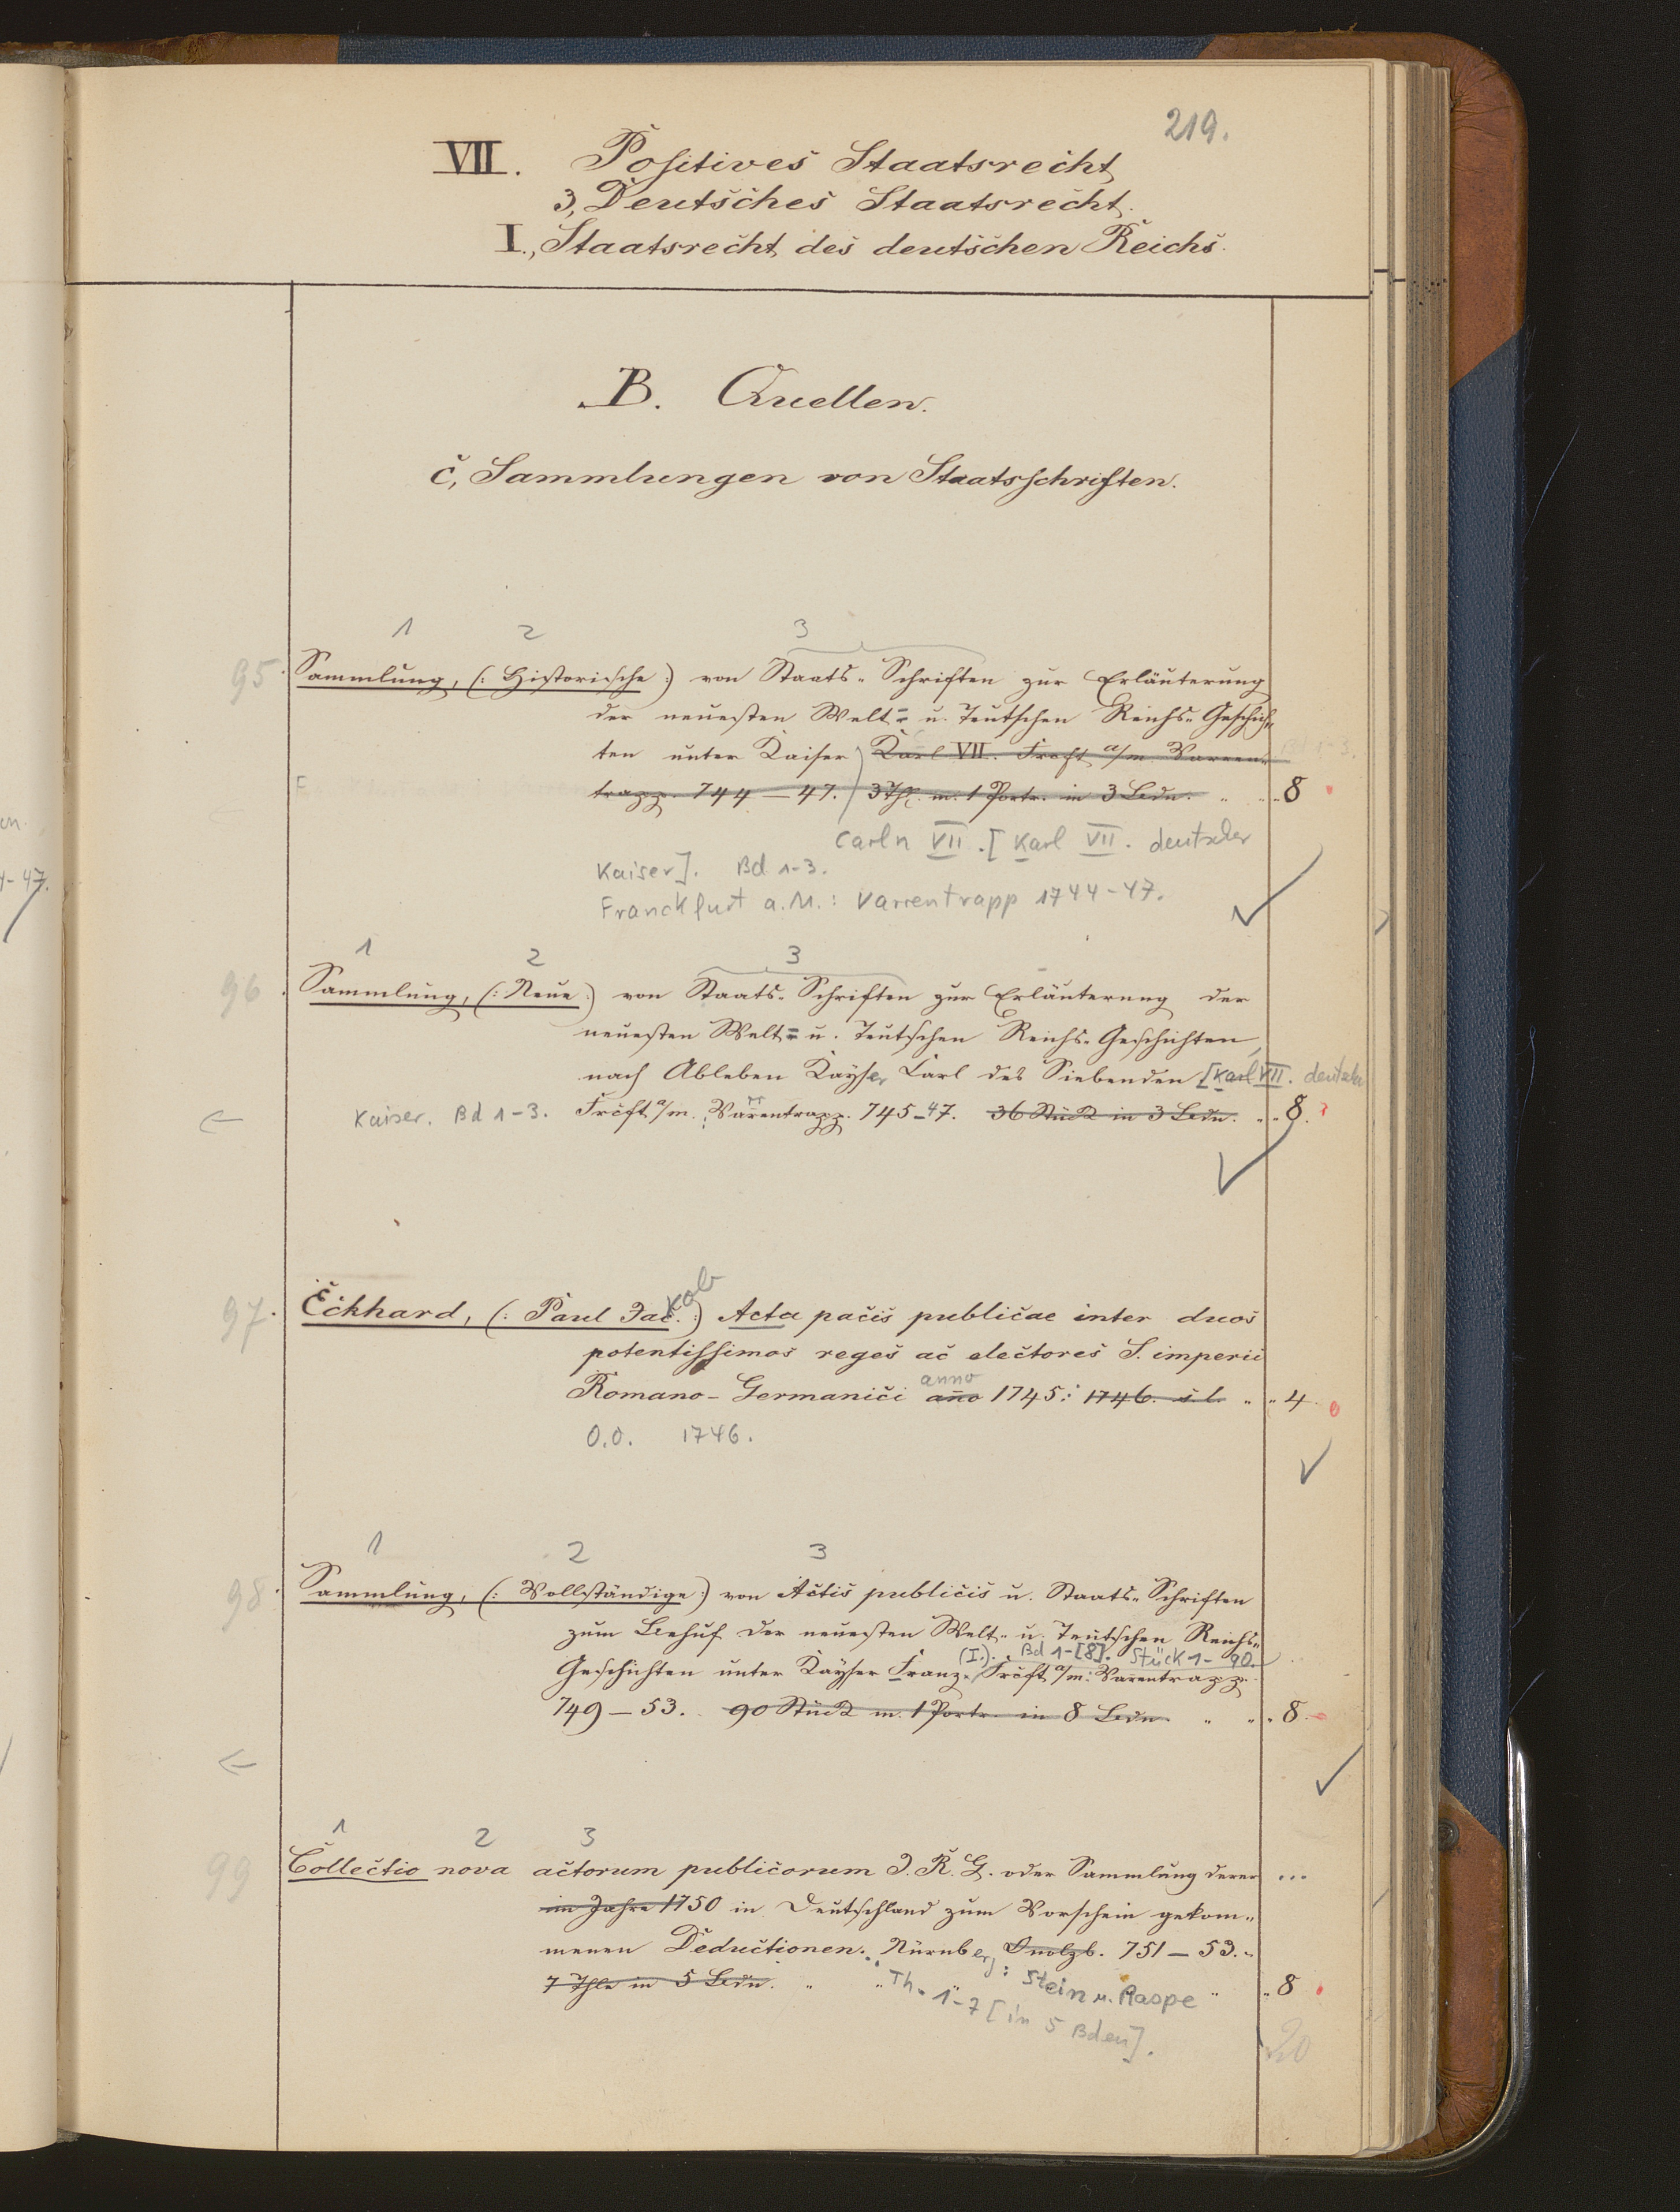 219.
VII. Positives Staatsrecht
3, Deutsches Staatsrecht.
I., Staatsrecht des deutschen Reichs.
B. Quellen.
c, Sammlungen von Staatsschriften.
1 2 3
95. Sammlung, (: Historische :) von Staats- Schriften zur Erläuterung
der neuesten Welt= u. Teutschen Reichs- Geschich-
ten unter Kaiser Karl VII. Frcft a/m Varren- Bd 1-3.
trapp. 744 — 47. 3 Thl. m. 1 Portr. in 3 Bdn. " " " 8
Carln VII. [Karl VII. deutscher
Kaiser]. Bd 1-3.
Franckfurt a.M.: Varrentrapp 1744-47.
1 2 3
96. Sammlung, (: Neue :) von Staats- Schriften zur Erläuterung der
neuesten Welt= u. Teutschen Reichs- Geschichten,
nach Ableben Kayser Carl des Siebenden [Karl VII. deutscher
Kaiser. Bd 1-3. Frcft a/m.: Varrentrapp. 745-47. 36 Stück in 3 Bdn. " " 8.
97. Eckhard, (: Paul Jac. :) kob Acta pacis publicae inter duos
potentissimos reges ac electores S. imperii
Romano- Germanici año anno 1745: 1746. s. l. " " 4.
O.O. 1746.
1 2 3
98. Sammlung, (: Vollständige :) von Actis publicis u. Staats- Schriften
zum Behuf der neuesten Welt- u. Teutschen Reichs-
(I.). Bd 1-[8]. Stück 1-90.
Geschichten unter Kayser Franz. Frcft a/m: Varentrapp
749 — 53. 90 Stück m. 1 Portr. in 8 Bdn. " " " 8.
1 2 3
99 Collectio nova actorum publicorum I. R. G. oder Sammlung derer ...
im Jahre 1750 in Deutschland zum Vorschein gekom-
menen Deductionen. Nürnberg: Onolzb. 751 — 53. "
7 Thle in 5 Bdn. " " " " " 8
Stein u. Raspe
Th. 1-7 [in 5 Bden].
20